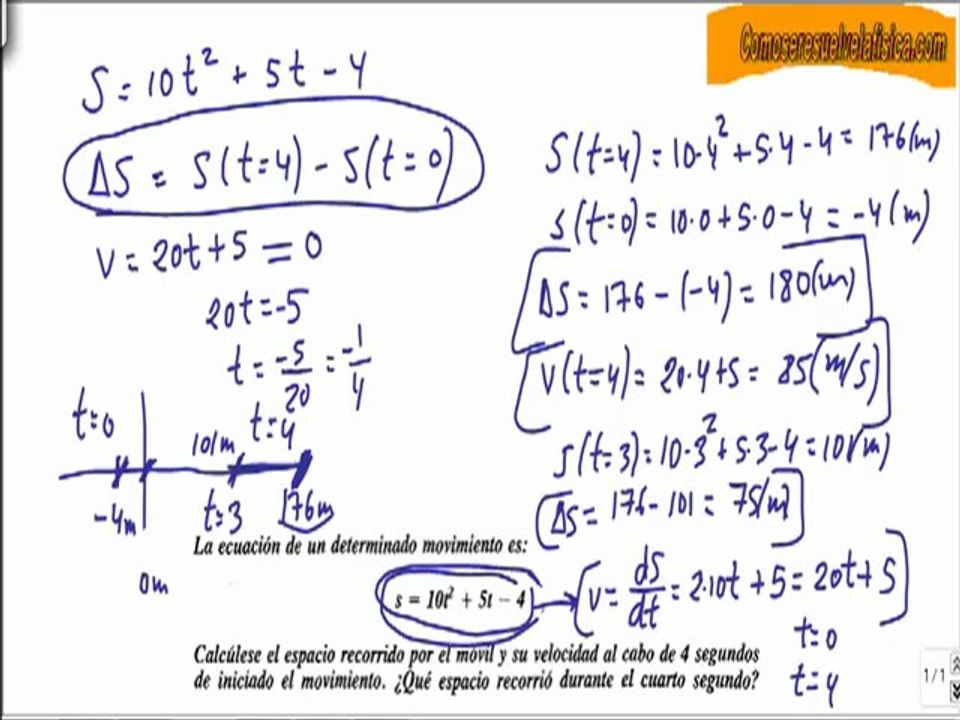 Comoseresuelvelafisica.com
S = 10t² + 5t - 4
ΔS = S(t=4) - S(t=0)
V = 20t + 5 = 0
20t = -5
t = -5/20 = -1/4
t=0
101m
t=4
-4m
t=3
176m
0m
S(t=4) = 10·4² + 5·4 - 4 = 176(m)
S(t=0) = 10·0 + 5·0 - 4 = -4(m)
ΔS = 176 - (-4) = 180(m)
V(t=4) = 20·4+5 = 85(m/s)
S(t=3) = 10·3² + 5·3 - 4 = 101(m)
ΔS = 176 - 101 = 75(m)
La ecuación de un determinado movimiento es:
s = 10t² + 5t - 4
V = dS/dt = 2·10t + 5 = 20t + 5
t=0
t=4
Calcúlese el espacio recorrido por el móvil y su velocidad al cabo de 4 segundos
de iniciado el movimiento. ¿Qué espacio recorrió durante el cuarto segundo?
1/1